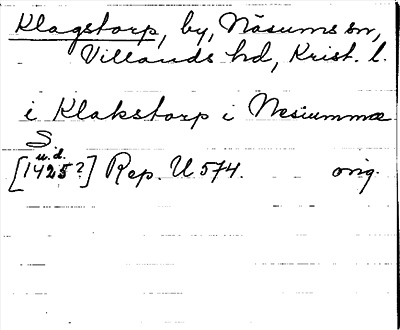 Klagstorp, by, Näsums sn,
Villands hd, Krist. l.
i Klakstorp i Nesiummæ
S
u. d.
[1425?] Rep. U 574. orig.